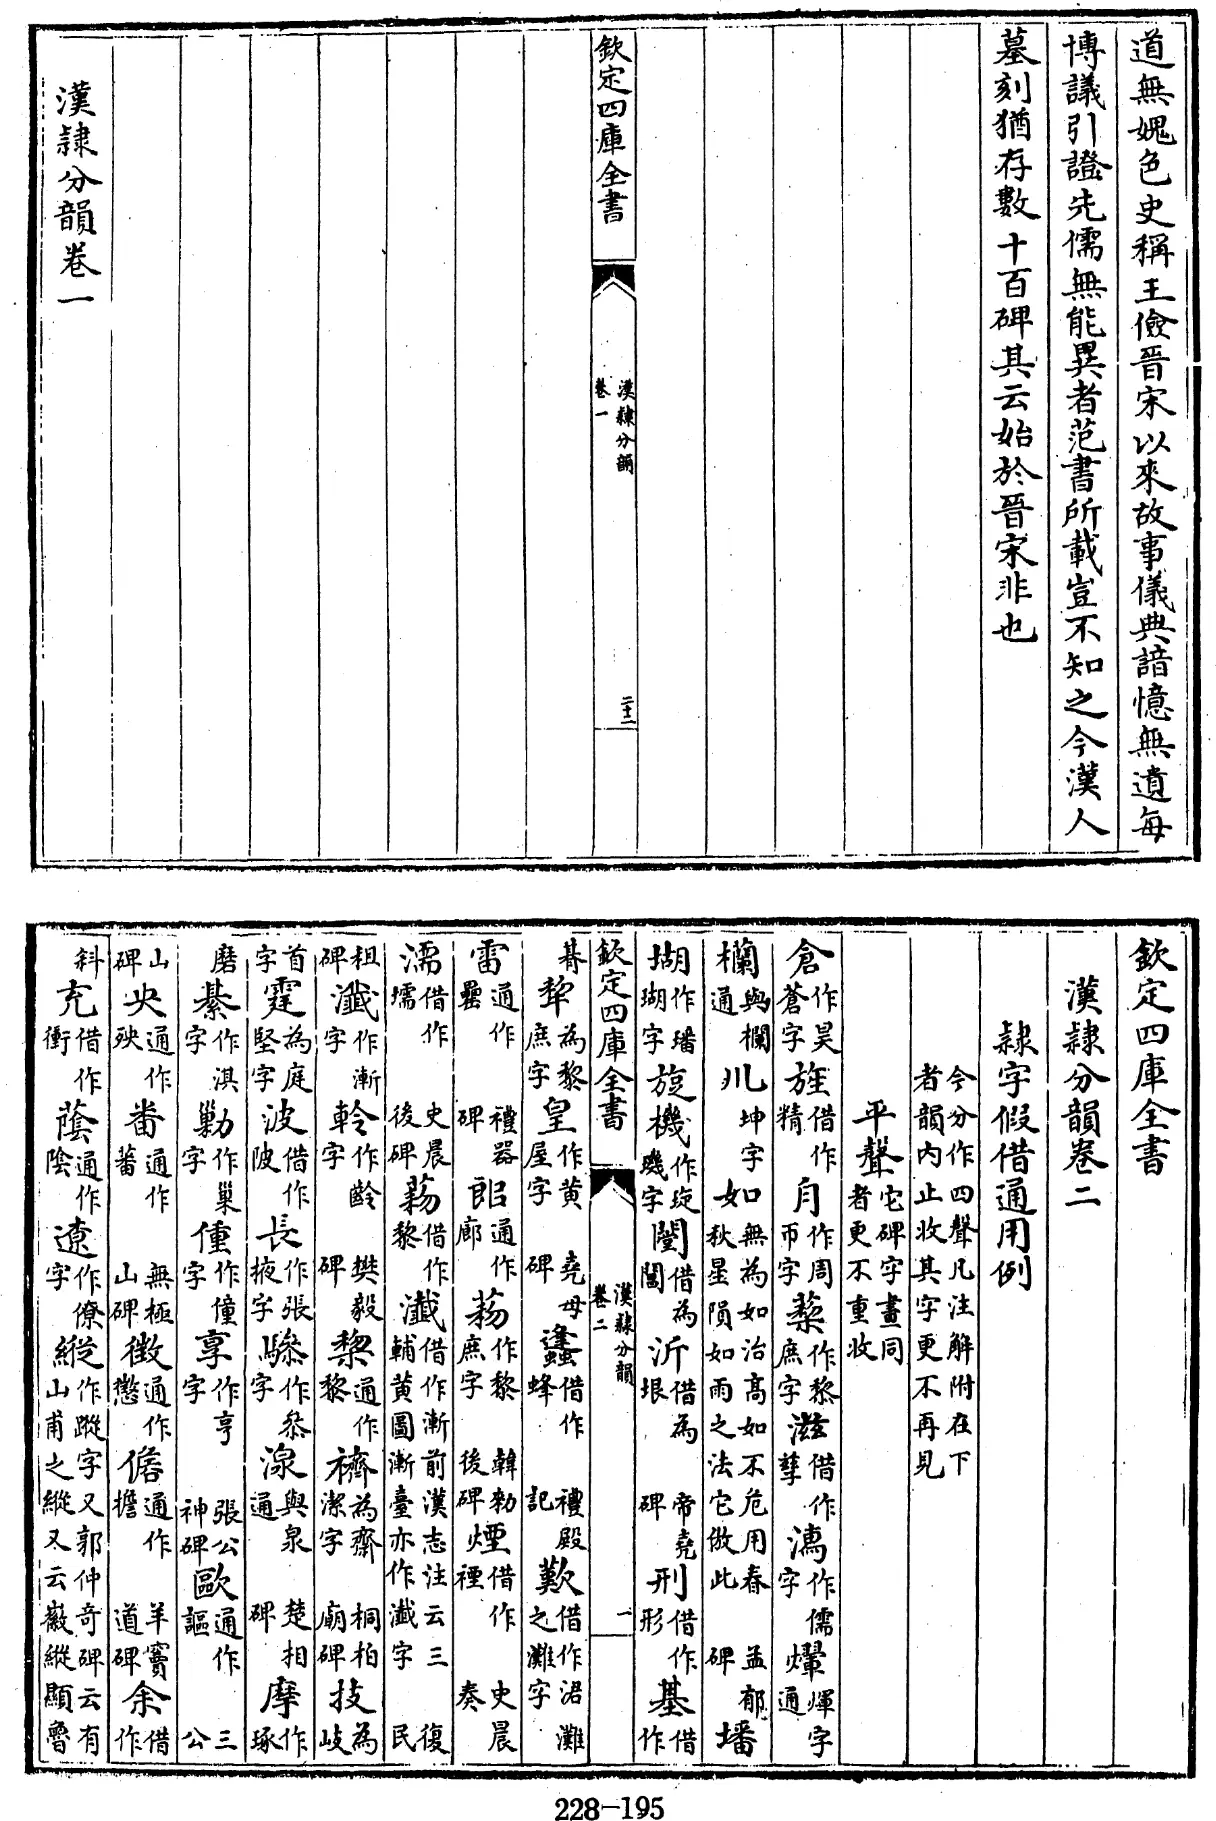 道無媿色史稱王儉晉宋以來故事儀典諳憶無遺每
博議引證先儒無能異者范書所載豈不知之今漢人
墓刻猶存數十百碑其云始於晉宋非也
欽定四庫全書
漢隸分韻
卷一
二十二
漢隸分韻卷一
欽定四庫全書
漢隸分韻卷二
隸字假借通用例
今分作四聲凡注解附在下
者韻内止收其字更不再見
平聲它碑字畫同者更不重收
倉作昊蒼字旌借作精⾃作周帀字蔾作黎庶字滋借作孳濡作儒字燿煇字通
欄與欄通𠁣坤字如無為如治高如不危用春秋星隕如雨之法它倣此孟郁碑墦
瑚作璠瑚字旋機作琁璣字閨借為閶沂借為垠帝堯碑刑借作形基借作
欽定四庫全書
漢隸分韻
卷二
一
朞犂為黎庶字皇作黄屋字堯母碑蠭借作蜂禮殿記歎借作涒灘之灘字
雷通作罍禮器碑郎通作廊蔾作黎庶字韓勑後碑煙借作禋史晨奏
濡借作壖史晨後碑蔾借作黎瀸借作漸前漢志注云三輔黄圖漸臺亦作瀸字復民
租碑瀸作漸字軨作齡字樊毅碑棃通作黎穧為齋潔字桐柏廟碑技為岐
首字霆為庭堅字波借作陂長作張掖字驂作叅字湶與泉通楚相碑摩作琢
磨綦作淇字勦作巢字僮作憧字享作亨字張公神碑歐通作謳三公
山碑央通作殃畨通作蕃無極山碑徴通作懲儋通作擔羊竇道碑余借作
斜充借作衝蔭通作陰遼作僚字縱作蹤字又郭仲奇碑云有山甫之縱又云徽縱顯魯
228-195